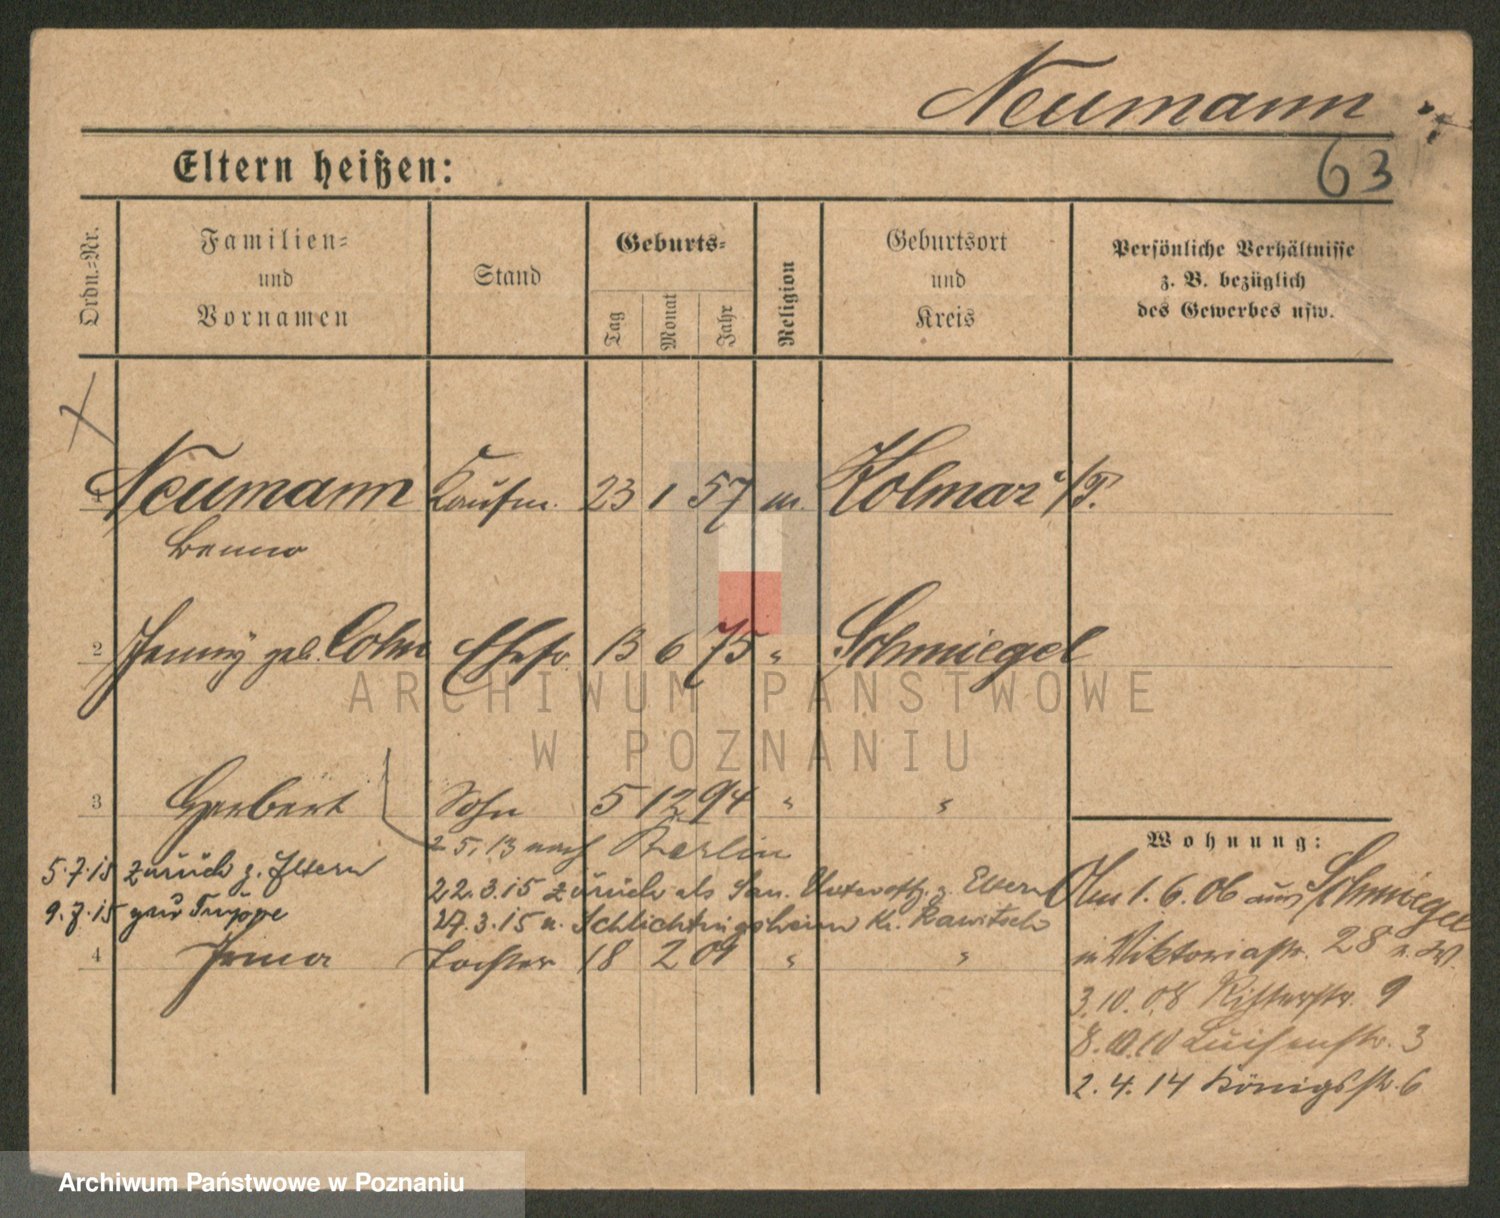 Neumann
63
Eltern heißen:
Ordn.-Nr.
Familien-
und
Vornamen
Stand
Geburts-
Tag
Monat
Jahr
Religion
Geburtsort
und
Kreis
Persönliche Verhältnisse
z. B. bezüglich
des Gewerbes usw.
1 Neumann Kaufm. 23 1 57 m. Kolmar i/P.
Benno
2 Jenny geb. Cohn Ehefr. 13 6 75 " Schmiegel
ARCHIWUM PAŃSTWOWE
W POZNANIU
3 Herbert Sohn 5 12 94 " "
25. 13 nach Berlin
5.7.15 zurück z. Eltern
22.3.15 zurück als San. Unteroffz. z. Eltern
9.7.15 zur Truppe
27.3.15 n. Schlichtingsheim Kr. Rawitsch
4 Irma Tochter 18 2 09 " "
Wohnung:
Am 1.6.06 aus Schmiegel
in Viktoriastr. 28 z. W.
3.10.08 Ritterstr. 9
8.10.10 Luisenstr. 3
2.4.14 Königsstr. 6
Archiwum Państwowe w Poznaniu